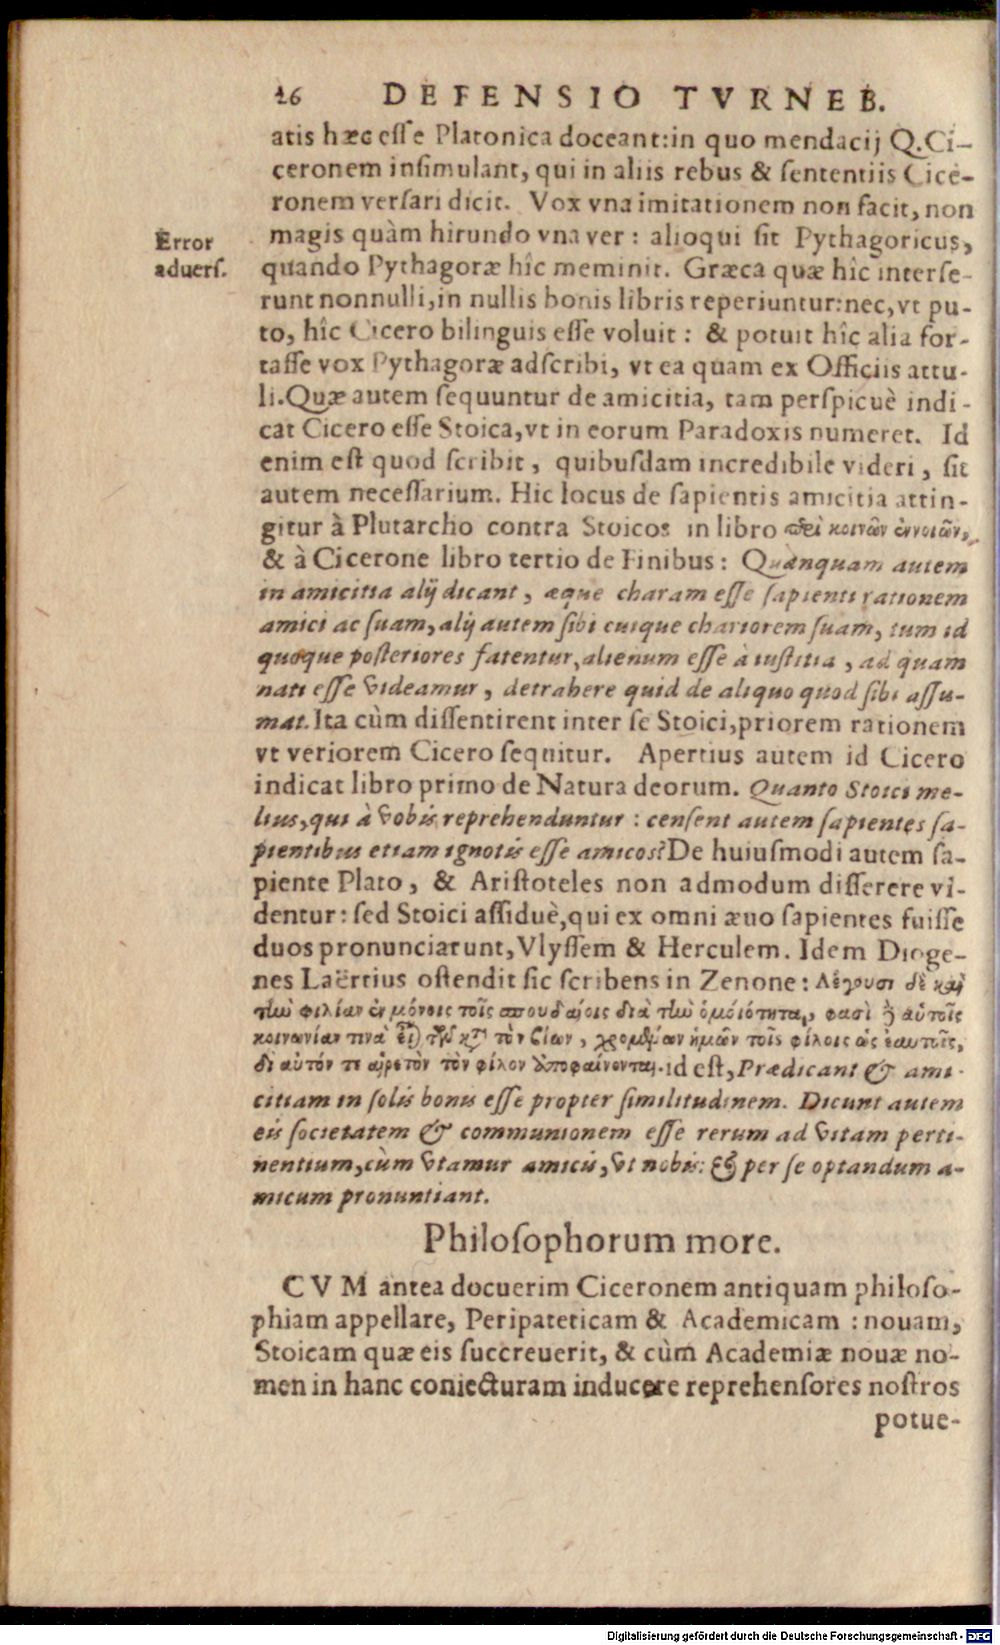 26 DEFENSIO TVRNEB.
atis hæc esse Platonica doceant:in quo mendacij Q.Ci-
ceronem insimulant, qui in aliis rebus & sententiis Cice-
ronem versari dicit. Vox vna imitationem non facit, non
Error
aduers.
magis quàm hirundo vna ver : alioqui sit Pythagoricus,
quando Pythagoræ hîc meminit. Græca quæ hîc interse-
runt nonnulli,in nullis bonis libris reperiuntur:nec,vt pu-
to, hîc Cicero bilinguis esse voluit : & potuit hîc alia for-
tasse vox Pythagoræ adscribi, vt ea quam ex Officiis attu-
li.Quæ autem sequuntur de amicitia, tam perspicuè indi-
cat Cicero esse Stoica,vt in eorum Paradoxis numeret. Id
enim est quod scribit, quibusdam incredibile videri, sit
autem necessarium. Hic locus de sapientis amicitia attin-
gitur à Plutarcho contra Stoicos in libro περὶ κοινῶν ἐννοιῶν,
& à Cicerone libro tertio de Finibus : Quanquam autem
in amicitia alij dicant, æque charam esse sapienti rationem
amici ac suam, alij autem sibi cuique chariorem suam, tum id
quoque posteriores fatentur,alienum esse à iustitia, ad quam
nati esse videamur, detrahere quid de aliquo quod sibi assu-
mat.Ita cùm dissentirent inter se Stoici,priorem rationem
vt veriorem Cicero sequitur. Apertius autem id Cicero
indicat libro primo de Natura deorum. Quanto Stoici me-
lius,qui à vobis reprehenduntur : censent autem sapientes sa-
pientibus etiam ignotis esse amicos?De huiusmodi autem sa-
piente Plato, & Aristoteles non admodum differere vi-
dentur : sed Stoici assiduè,qui ex omni æuo sapientes fuisse
duos pronunciarunt,Vlyssem & Herculem. Idem Dioge-
nes Laërtius ostendit sic scribens in Zenone : Λέγουσι δὲ καὶ
τὴν φιλίαν ἐν μόνοις τοῖς σπουδαίοις διὰ τὴν ὁμοιότητα, φασὶ δ᾽ αὐτοῖς
κοινωνίαν τινὰ εἶναι τῶν κατὰ τὸν βίον, χρομένων ἡμῶν τοῖς φίλοις ὡς ἑαυτοῖς,
δι αὐτόν τε αἱρετὸν τὸν φίλον ἀποφαίνονται.id est, Prædicant & ami-
citiam in solis bonis esse propter similitudinem. Dicunt autem
eis societatem & communionem esse rerum ad vitam perti-
nentium,cùm vtamur amicis,vt nobis: & per se optandum a-
micum pronuntiant.
Philosophorum more.
CVM antea docuerim Ciceronem antiquam philoso-
phiam appellare, Peripateticam & Academicam : nouam,
Stoicam quæ eis succreuerit, & cùm Academiæ nouæ no-
men in hanc coniecturam inducere reprehensores nostros
potue-
Digitalisierung gefördert durch die Deutsche Forschungsgemeinschaft - DFG